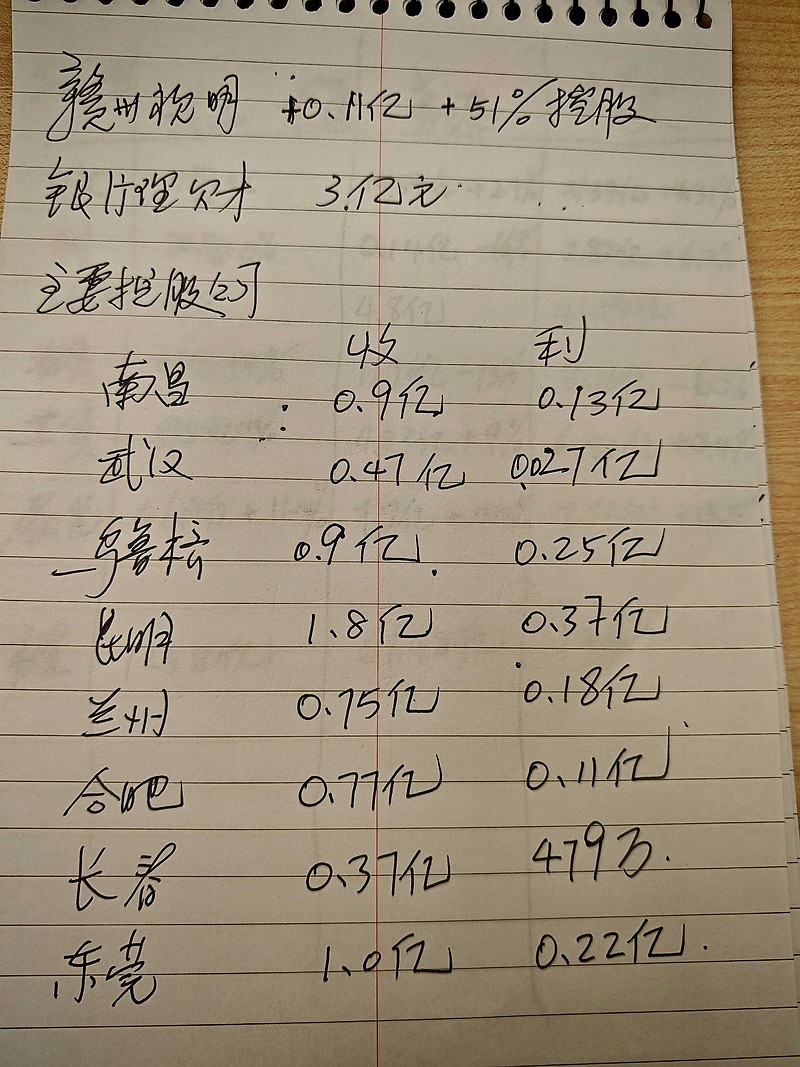 赣州视明 +0.11亿 +51%控股
银行理财 3.亿元
主要控股公司
收 利
南昌 : 0.9亿 0.13亿
武汉 0.47亿 0.027亿
乌鲁木齐 0.9亿 0.25亿
昆明 1.8亿 0.37亿
兰州 0.75亿 0.18亿
合肥 0.77亿 0.11亿
长春 0.37亿 479万.
东莞 1.0亿 0.22亿.